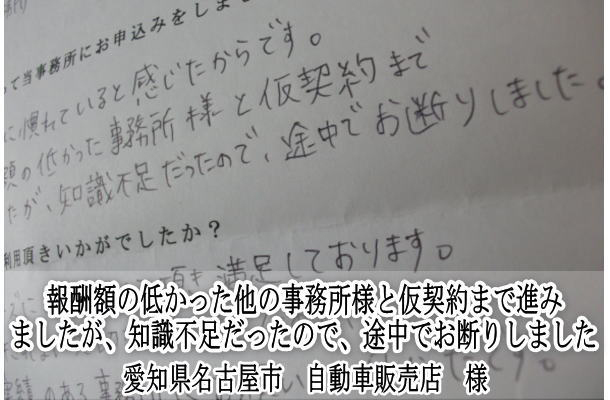 って当事務所にお申込みをしま
に慣れていると感じたからです。
額の低かった事務所様と仮契約まで
たが、知識不足だったので、途中でお断りしました。
利用頂きいかがでしたか？
満足しております。
報酬額の低かった他の事務所様と仮契約まで進み
ましたが、知識不足だったので、途中でお断りしました
愛知県名古屋市　自動車販売店　様